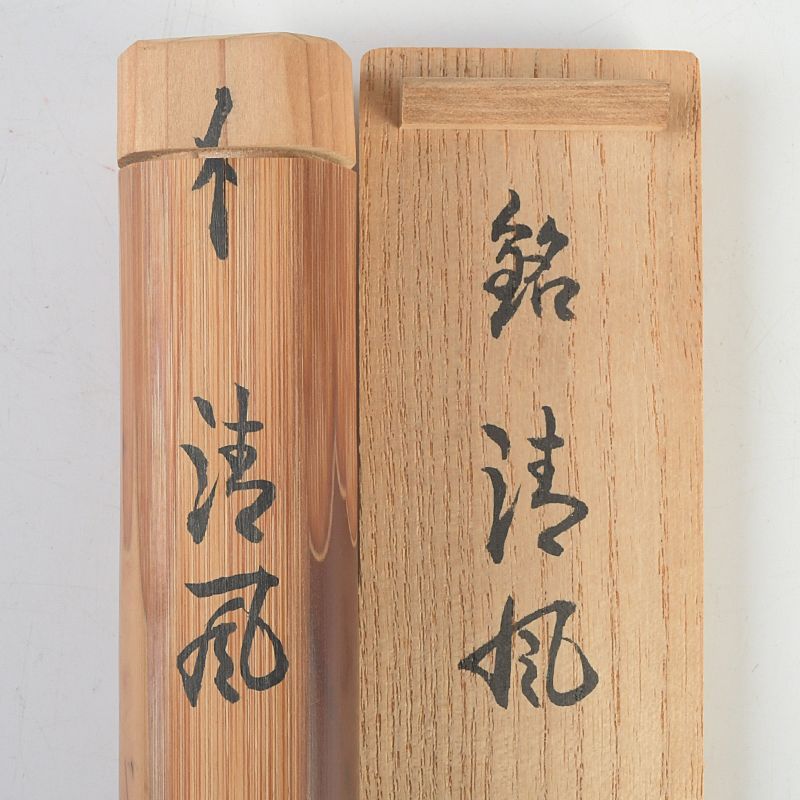 銘 清風
清風